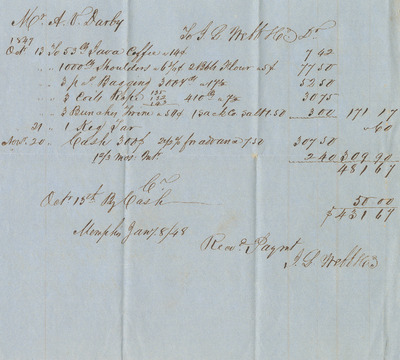 Mr. A. D. Darby
To J. S. Webb & Co Dr.
1847
Oct 13 To 53 lb Java Coffee 14¢ 7 42
" " 1000 lb Shoulders 2 Bbls Flour 5$ 77 50
" " 3 ps Bagging 300 17½ 52 50
" " 3 Coils Rope 410 lb 7½ 30 75
" " 3 Bunches Twine 50¢ 1 sack Salt 1.50 3 00 171 17
21 " 1 Keg Tar 60
Novr. 20 " Cash 300$ 2½% for advance 7.50 307 50
1 2/3 mos. Int 2 40 309 90
481 67
Cr.
Oct 13th By Cash 50 00
$431 67
Memphis Jany 8/48
Recd. Paymt
J. S. Webb & Co